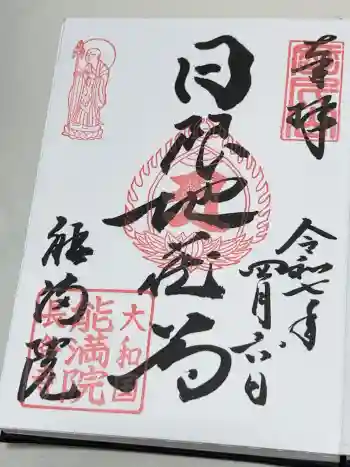 奉拝
令和七年
四月六日
日限地蔵尊
能満院
大和国
能満院